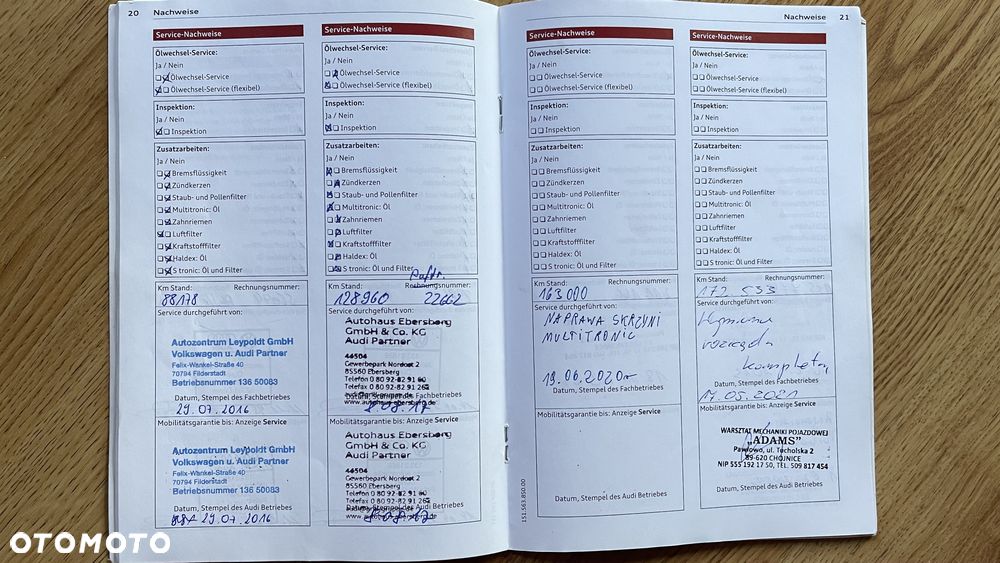 20 Nachweise
Service-Nachweise
Ölwechsel-Service:
Ja / Nein
Ölwechsel-Service
Ölwechsel-Service (flexibel)
Inspektion:
Ja / Nein
Inspektion
Zusatzarbeiten:
Ja / Nein
Bremsflüssigkeit
Zündkerzen
Staub- und Pollenfilter
Multitronic: Öl
Zahnriemen
Luftfilter
Kraftstofffilter
Haldex: Öl
S tronic: Öl und Filter
Km Stand: Rechnungsnummer:
88178
Service durchgeführt von:
Autozentrum Leypoldt GmbH
Volkswagen u. Audi Partner
Felix-Wankel-Straße 40
70794 Filderstadt
Betriebsnummer 136 50083
Datum, Stempel des Fachbetriebes
29.07.2016
Mobilitätsgarantie bis: Anzeige Service
Autozentrum Leypoldt GmbH
Volkswagen u. Audi Partner
Felix-Wankel-Straße 40
70794 Filderstadt
Betriebsnummer 136 50083
Datum, Stempel des Audi Betriebes
29.07.2016
Service-Nachweise
Ölwechsel-Service:
Ja / Nein
Ölwechsel-Service
Ölwechsel-Service (flexibel)
Inspektion:
Ja / Nein
Inspektion
Zusatzarbeiten:
Ja / Nein
Bremsflüssigkeit
Zündkerzen
Staub- und Pollenfilter
Multitronic: Öl
Zahnriemen
Luftfilter
Kraftstofffilter
Haldex: Öl
S tronic: Öl und Filter
Km Stand: Rechnungsnummer:
128960 22662
Service durchgeführt von:
Autohaus Ebersberg
GmbH & Co. KG
Audi Partner
44504
Gewerbepark Nordost 2
85560 Ebersberg
Telefon 0 80 92-82 91 60
Telefax 0 80 92-82 91 262
www.autohaus-ebersberg.de
Datum, Stempel des Fachbetriebes
Mobilitätsgarantie bis: Anzeige Service
Autohaus Ebersberg
GmbH & Co. KG
Audi Partner
44504
Gewerbepark Nordost 2
85560 Ebersberg
Telefon 0 80 92-82 91 60
Telefax 0 80 92-82 91 262
Datum, Stempel des Audi Betriebes
Nachweise 21
Service-Nachweise
Ölwechsel-Service:
Ja / Nein
Ölwechsel-Service
Ölwechsel-Service (flexibel)
Inspektion:
Ja / Nein
Inspektion
Zusatzarbeiten:
Ja / Nein
Bremsflüssigkeit
Zündkerzen
Staub- und Pollenfilter
Multitronic: Öl
Zahnriemen
Luftfilter
Kraftstofffilter
Haldex: Öl
S tronic: Öl und Filter
Km Stand: Rechnungsnummer:
163000
Service durchgeführt von:
NAPRAWA SKRZYNI
MULTITRONIC
19.06.2020r
Datum, Stempel des Fachbetriebes
Mobilitätsgarantie bis: Anzeige Service
Datum, Stempel des Audi Betriebes
151.563.850.00
Service-Nachweise
Ölwechsel-Service:
Ja / Nein
Ölwechsel-Service
Ölwechsel-Service (flexibel)
Inspektion:
Ja / Nein
Inspektion
Zusatzarbeiten:
Ja / Nein
Bremsflüssigkeit
Zündkerzen
Staub- und Pollenfilter
Multitronic: Öl
Zahnriemen
Luftfilter
Kraftstofffilter
Haldex: Öl
S tronic: Öl und Filter
Km Stand: Rechnungsnummer:
172 533
Service durchgeführt von:
Wymiana
rozrządu
kompletny
Datum, Stempel des Fachbetriebes
Mobilitätsgarantie bis: Anzeige Service
WARSZTAT MECHANIKI POJAZDOWEJ
„ADAMS”
Pawłowo, ul. Tucholska 2
89-620 CHOJNICE
NIP 555 192 17 50, TEL. 509 817 454
Datum, Stempel des Audi Betriebes
OTOMOTO